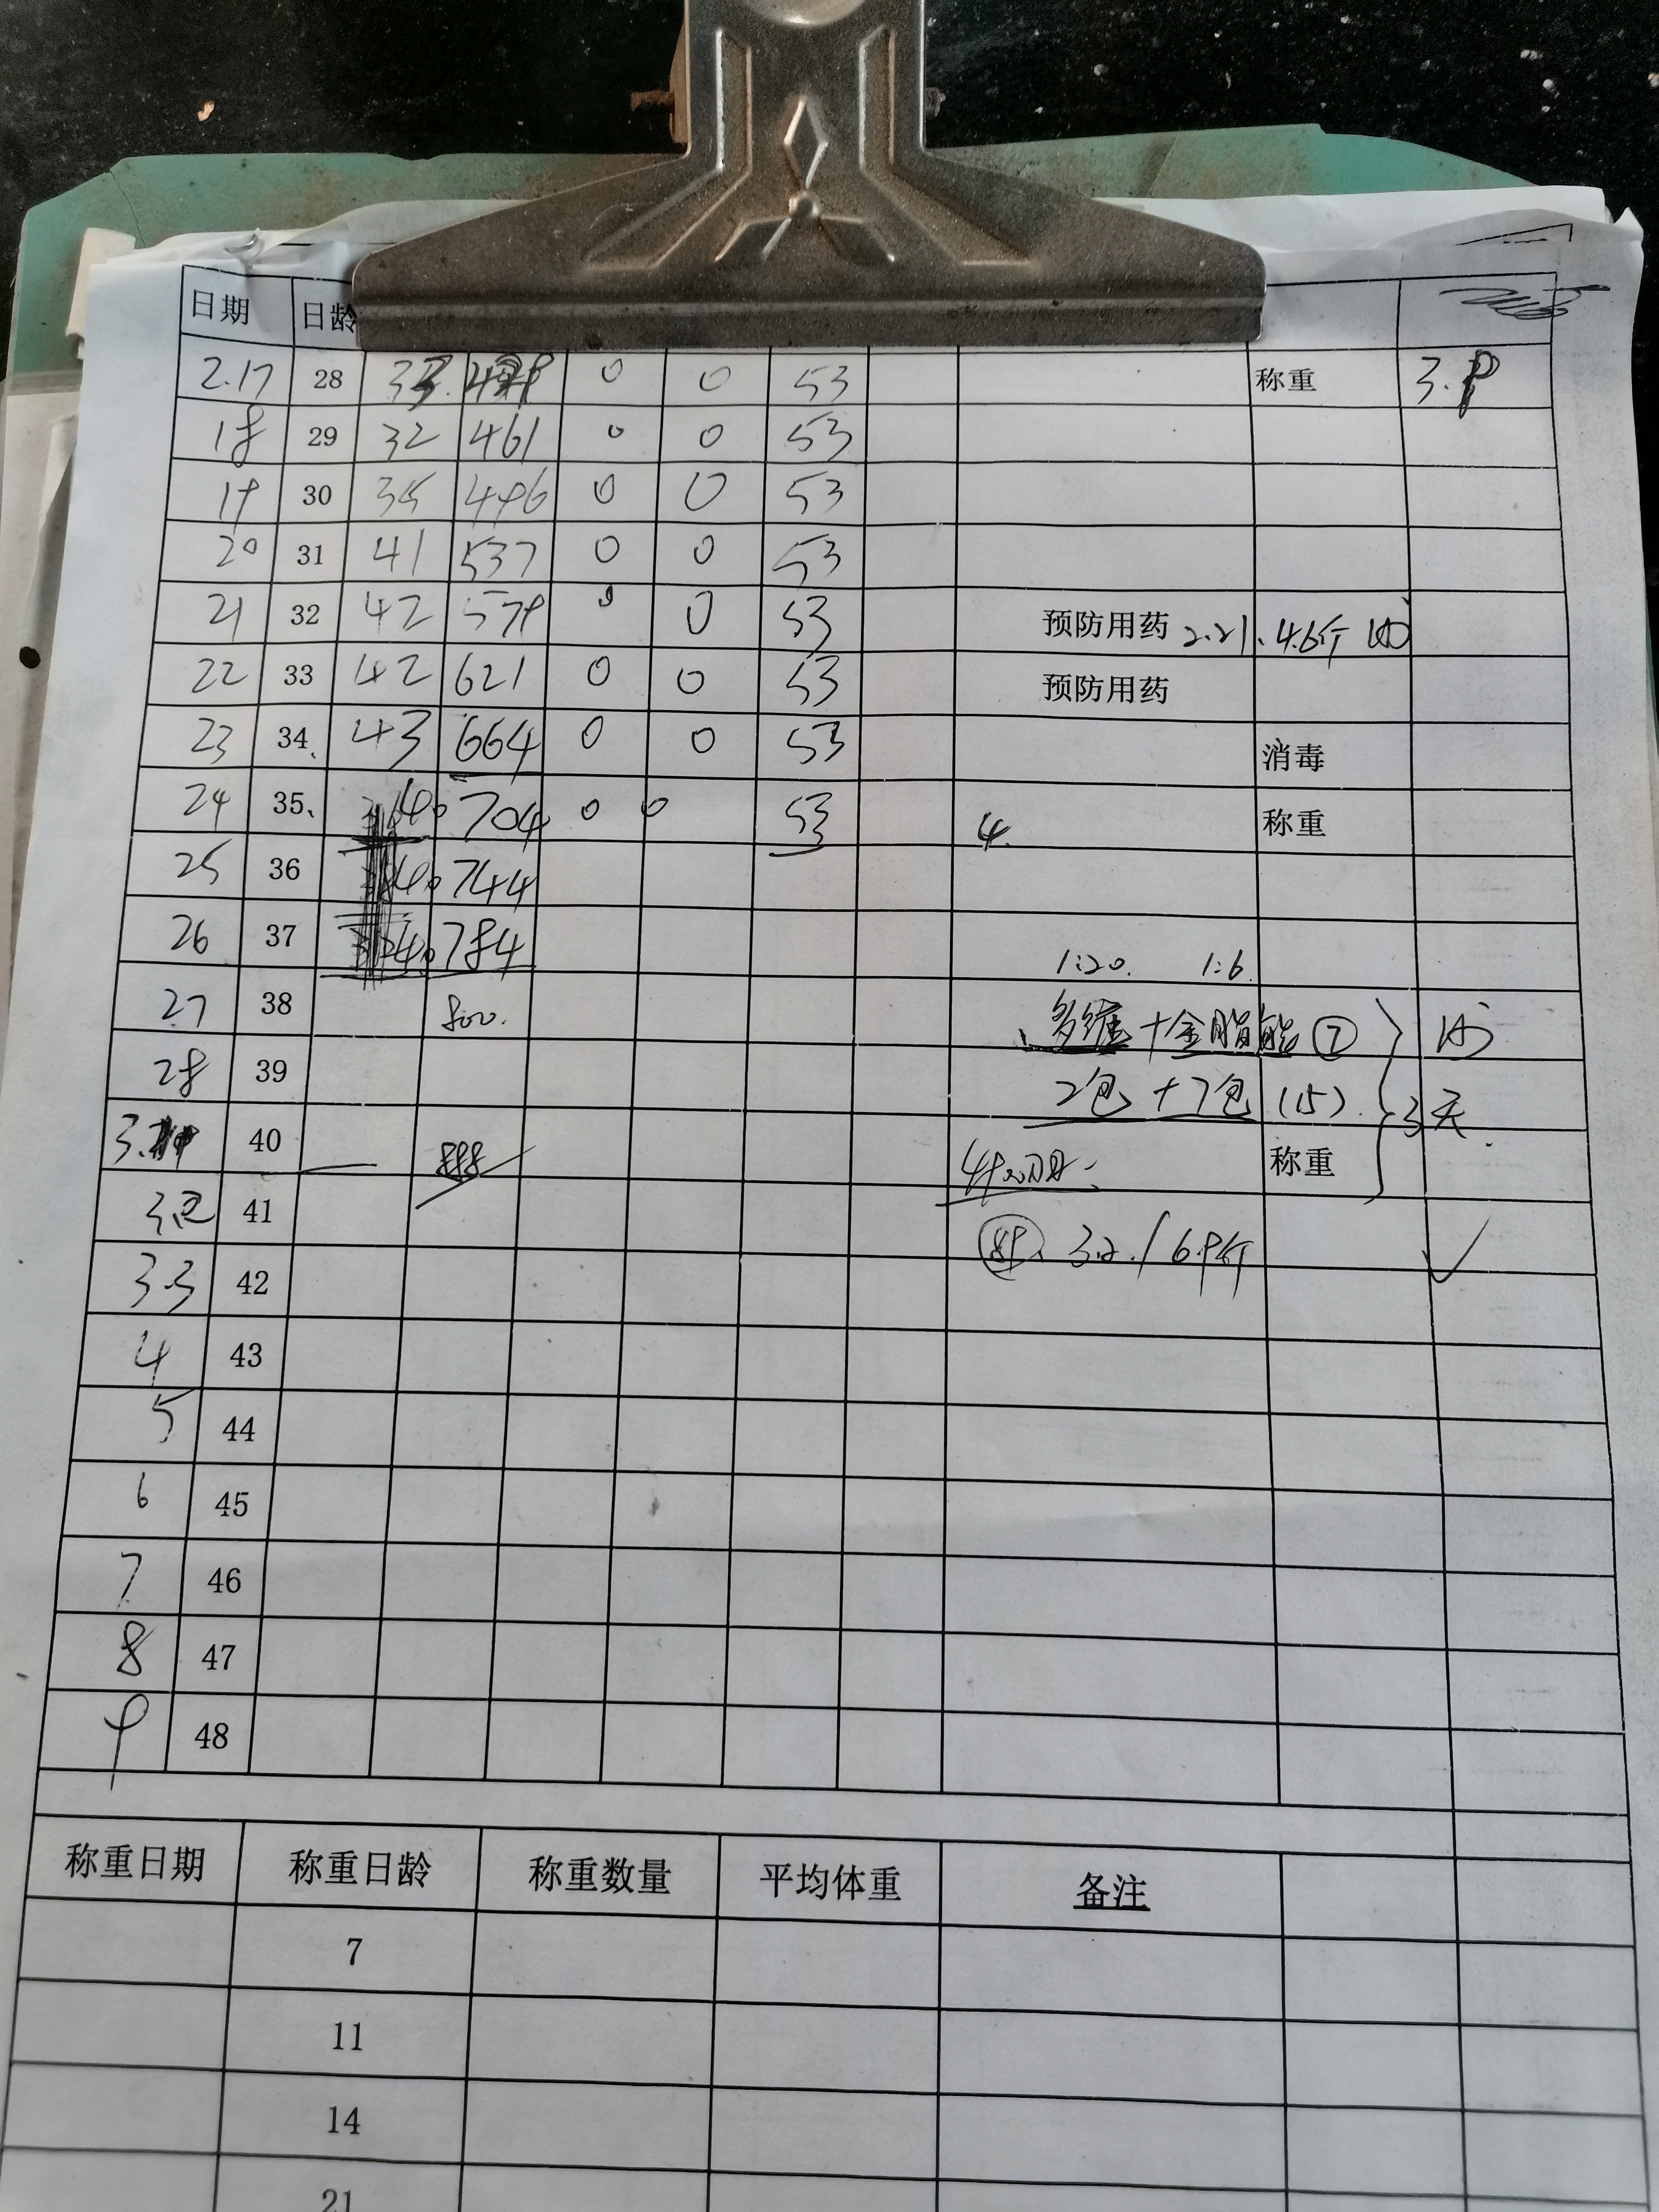 日期 日龄
2.17 28 33 0 0 53 称重 3.9
18 29 32 461 0 0 53
19 30 35 496 0 0 53
20 31 41 537 0 0 53
21 32 42 579 0 0 53 预防用药 2.21. 4.6斤
22 33 42 621 0 0 53 预防用药
23 34、 43 664 0 0 53 消毒
24 35、 40 704 0 0 53 4. 称重
25 36 40 744
26 37 40 784
1:20. 1:6.
27 38 800. 多维+金脂能 ⑦
28 39 2包+7包 (15). 3天.
3. 40 888 称重
3.2 41 89 3.2./6.9斤 ✓
3.3 42
4 43
5 44
6 45
7 46
8 47
9 48
称重日期 称重日龄 称重数量 平均体重 备注
7
11
14
21